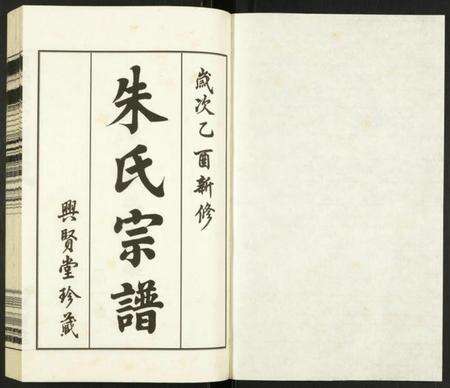 歲次乙酉新修
朱氏宗譜
興賢堂珍藏